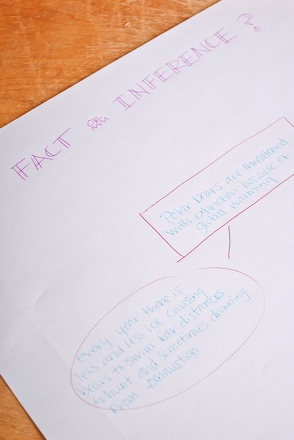 FACT or INFERENCE?
Polar bears are threatened
with extinction because of
global warming
Every year there is
less and less ice causing
bears to swim far distances
to hunt and sometimes drowning
from exhaustion